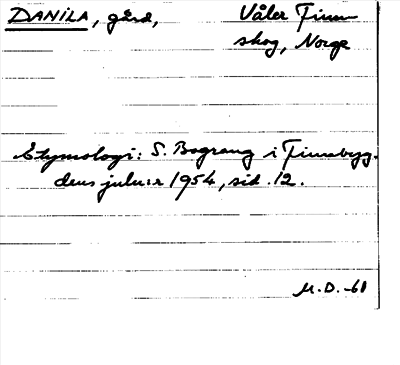 DANILA, gård, Våler Finn-
skog, Norge
Etymologi: S. Bograng i Finnebyg-
dens julnr 1954, sid. 12.
M.D.-61